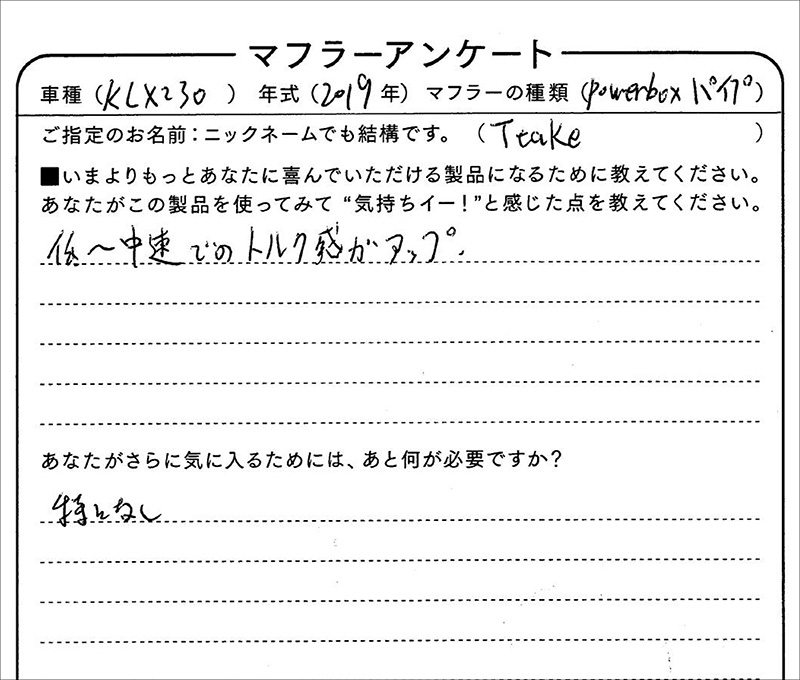 マフラーアンケート
車種（KLX230）年式（2019年）マフラーの種類（Powerbox パイプ）
ご指定のお名前：ニックネームでも結構です。（Ttake）
■いまよりもっとあなたに喜んでいただける製品になるために教えてください。
あなたがこの製品を使ってみて“気持ちイー！”と感じた点を教えてください。
低～中速でのトルク感がアップ。
あなたがさらに気に入るためには、あと何が必要ですか？
特になし